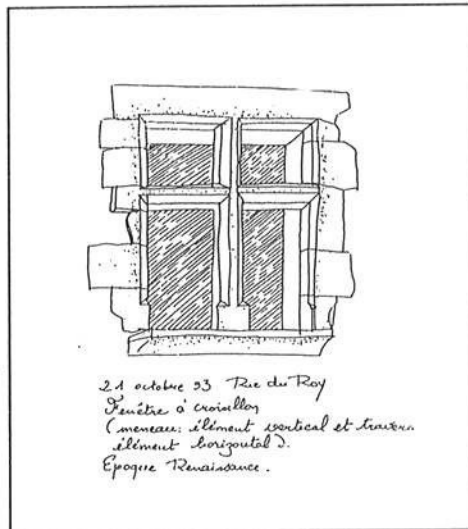 21 octobre 93 Rue du Roy
Fenêtre à croisillon
(meneau: élément vertical et travers.
élément horizontal).
Epoque Renaissance.